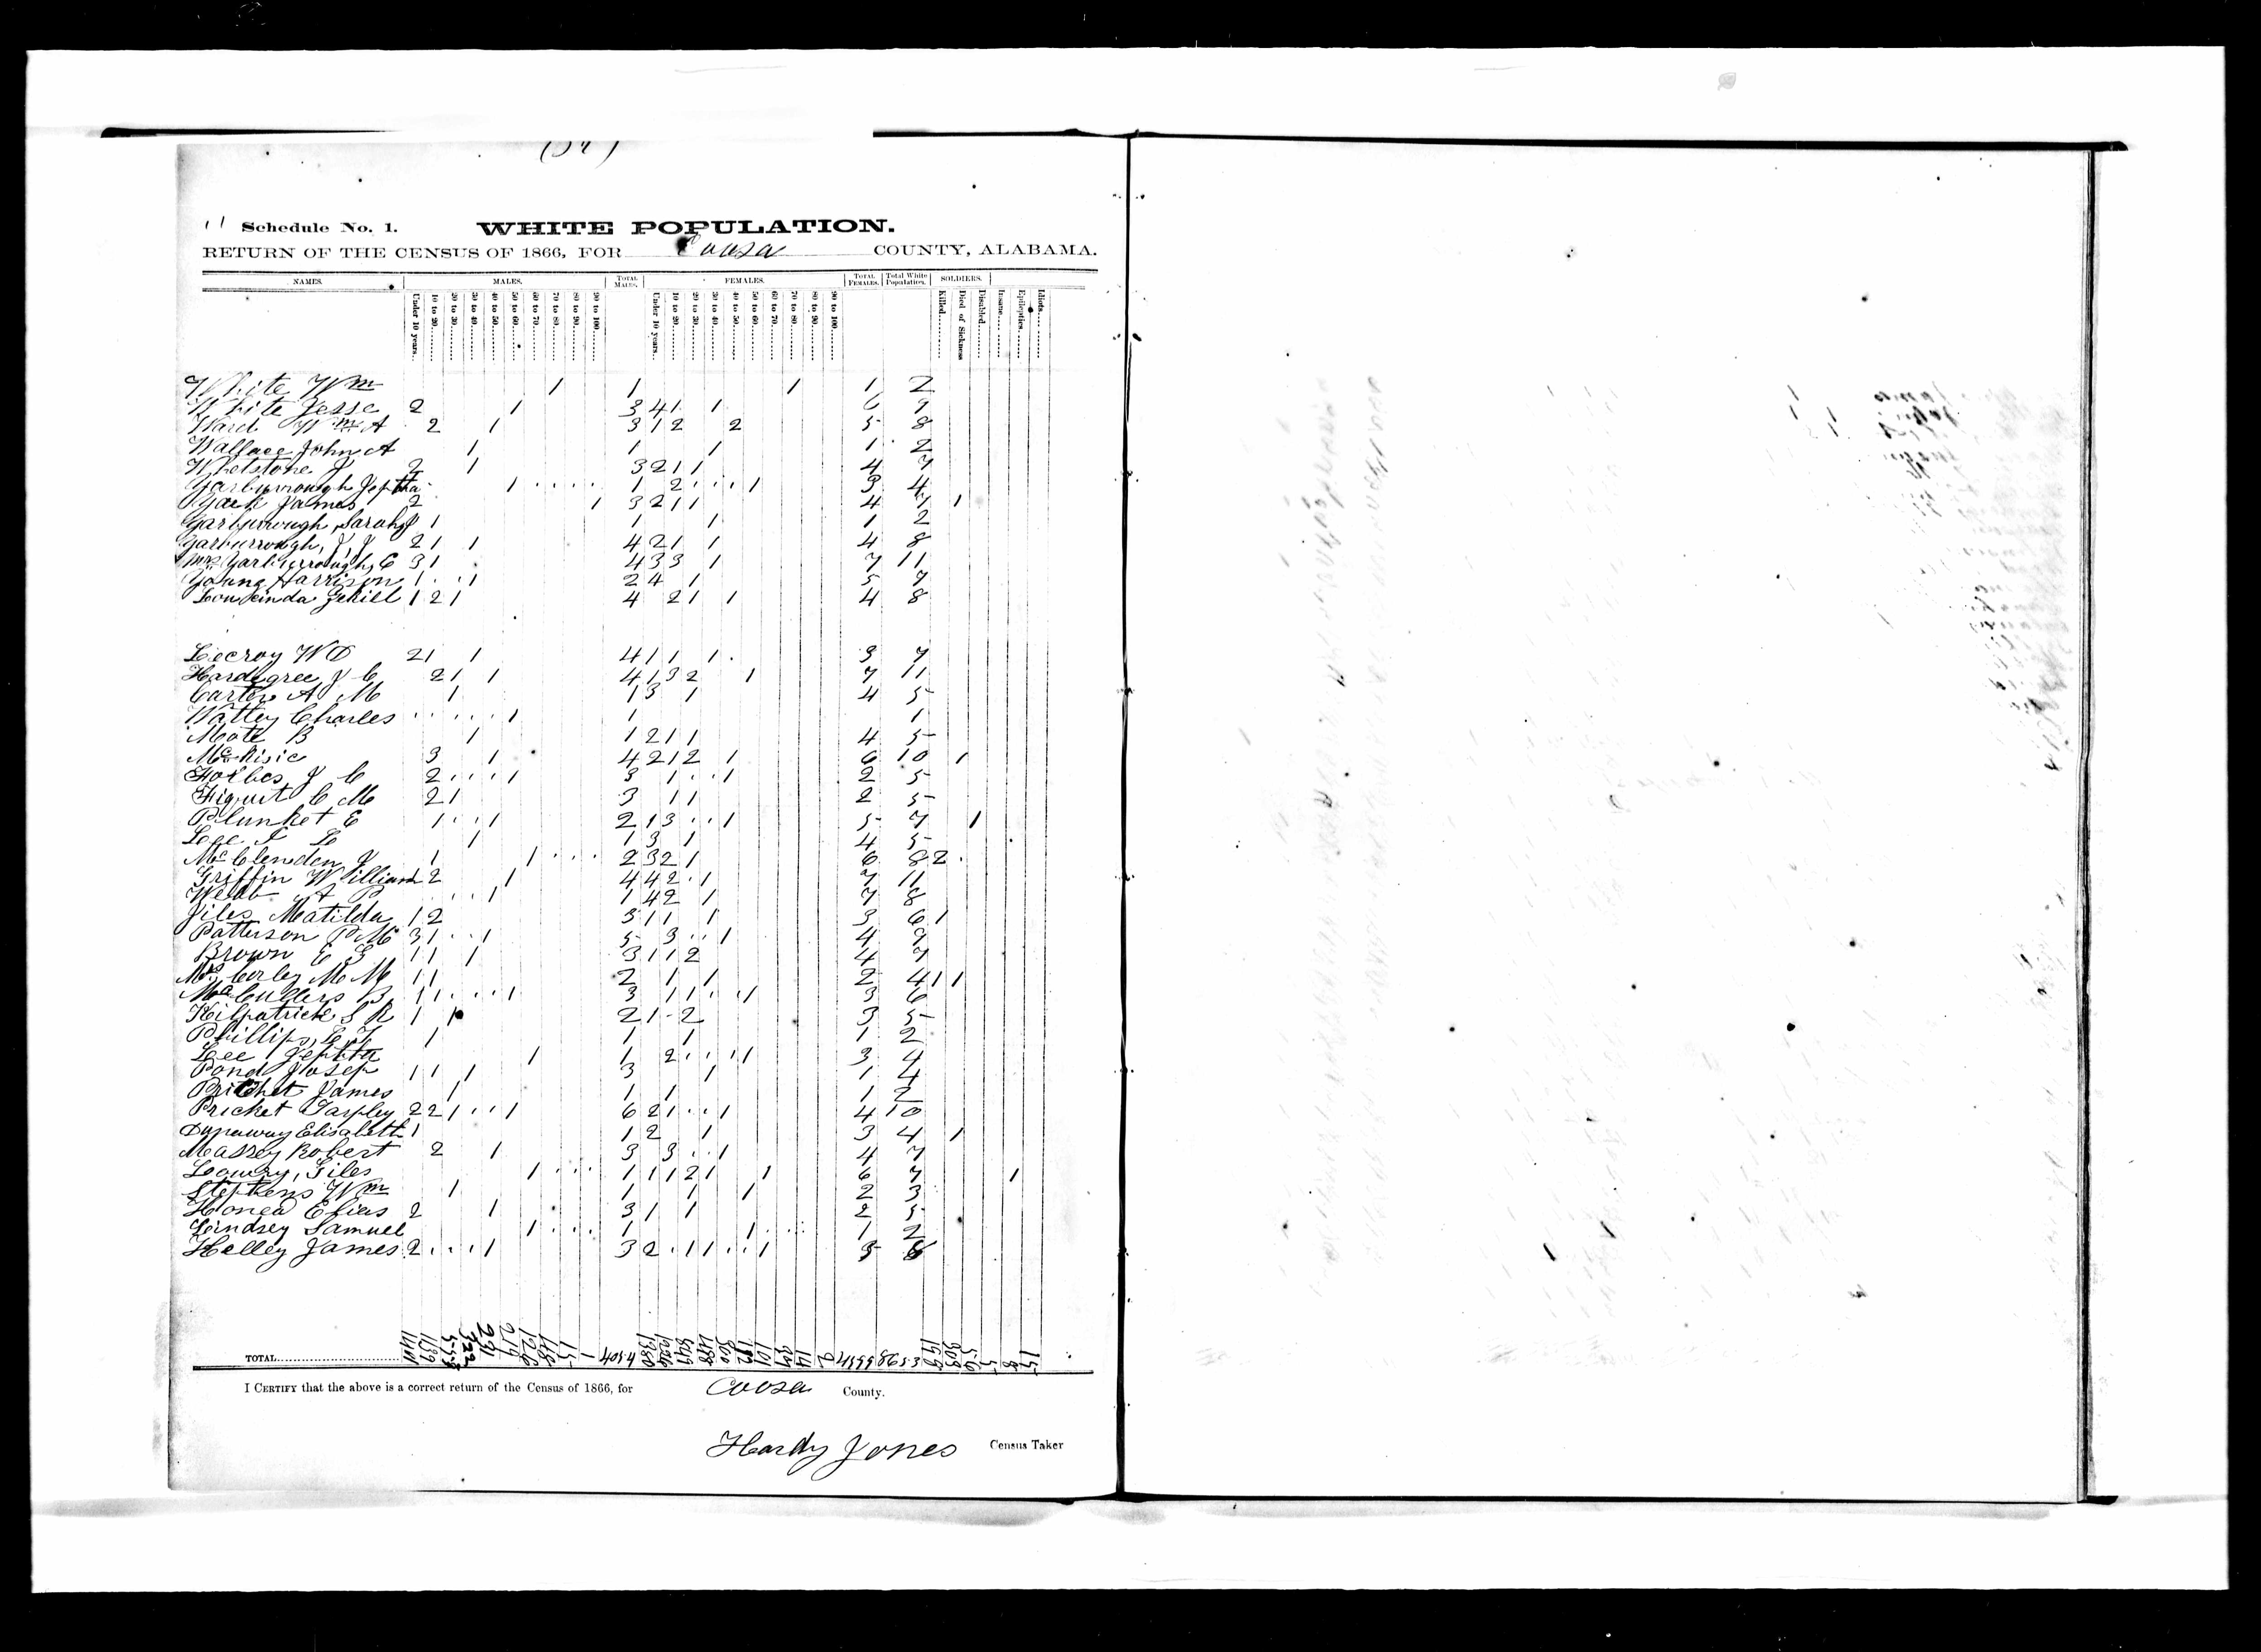 Schedule No. 1. WHITE POPULATION.
RETURN OF THE CENSUS OF 1866, FOR Coosa COUNTY, ALABAMA.
NAMES. MALES. TOTAL MALES. FEMALES. TOTAL FEMALES. Total White Population. SOLDIERS.
Under 10 years. 10 to 20 20 to 30 30 to 40 40 to 50 50 to 60 60 to 70 70 to 80 80 to 90 90 to 100 Under 10 years. 10 to 20 20 to 30 30 to 40 40 to 50 50 to 60 60 to 70 70 to 80 80 to 90 90 to 100 Killed Died of Sickness Disabled Insane Epileptics Idiots
White Wm 1 1 1 1 2
White Jesse 2 1 3 4 1 1 6 9
Ward Wm A 2 1 3 1 2 2 5 8
Wallace John A 1 1 1 1 2
Whetstone J 2 1 3 2 1 1 4 7
Yarburrough Jeptha 1 1 2 1 3 4
James 2 1 3 2 1 1 4 7 1
Yarburrough, Sarah 1 1 1 1 2
Yarburrough, J, J 2 1 1 4 2 1 1 4 8
Mrs Yarburrough, C 3 1 4 3 3 1 7 11
Young Harrison 1 1 2 4 1 5 7
1 2 1 4 2 1 1 4 8
Lecroy W D 2 1 1 4 1 1 1 3 7
Hardegree J C 2 1 1 4 1 3 2 1 7 11
Carter A M 1 1 3 1 4 5
Watley Charles 1 1 1
Mote B 1 1 2 1 1 4 5
McKisic 3 1 4 2 1 2 1 6 10 1
Forbes J C 2 1 3 1 1 2 5
C M 2 1 3 1 1 2 5
Plunket E 1 1 2 1 3 1 5 7 1
Lee 1 1 3 1 4 5
McClendon J 1 1 2 3 2 1 6 8 2
Griffin William 1 2 1 4 4 2 1 7 11
Webb A P 1 1 4 2 1 7 8
Jiles Matilda 1 2 3 1 1 1 3 6 1
Patterson P M 3 1 1 5 3 1 4 9
Brown E G 1 1 1 3 1 1 2 4 7
Mrs Corley M M 1 1 2 1 1 2 4 1 1
McCullers B 1 1 1 3 1 1 1 3 6
Kilpatrick S R 1 1 2 1 2 3 5
Phillips, 1 1 1 1 2
Lee Jeptha 1 1 2 1 3 4
Pond Josep 1 1 1 3 1 1 4
Pritchet James 1 1 1 1 2
Pricket Tarpley 2 2 1 1 6 2 1 1 4 10
Dunaway Elisabeth 1 1 2 1 3 4 1
Massey Robert 2 1 3 3 1 4 7
Lowry, Giles 1 1 1 1 2 1 1 6 7 1
Stephens Wm 1 1 1 1 2 3
Honea Elias 2 1 3 1 1 2 5
Lindsey Samuel 1 1 1 1 2
Kelley James 2 1 3 2 1 1 1 5 8
TOTAL 4054 4599 8653
I CERTIFY that the above is a correct return of the Census of 1866, for Coosa County.
Hardy Jones Census Taker